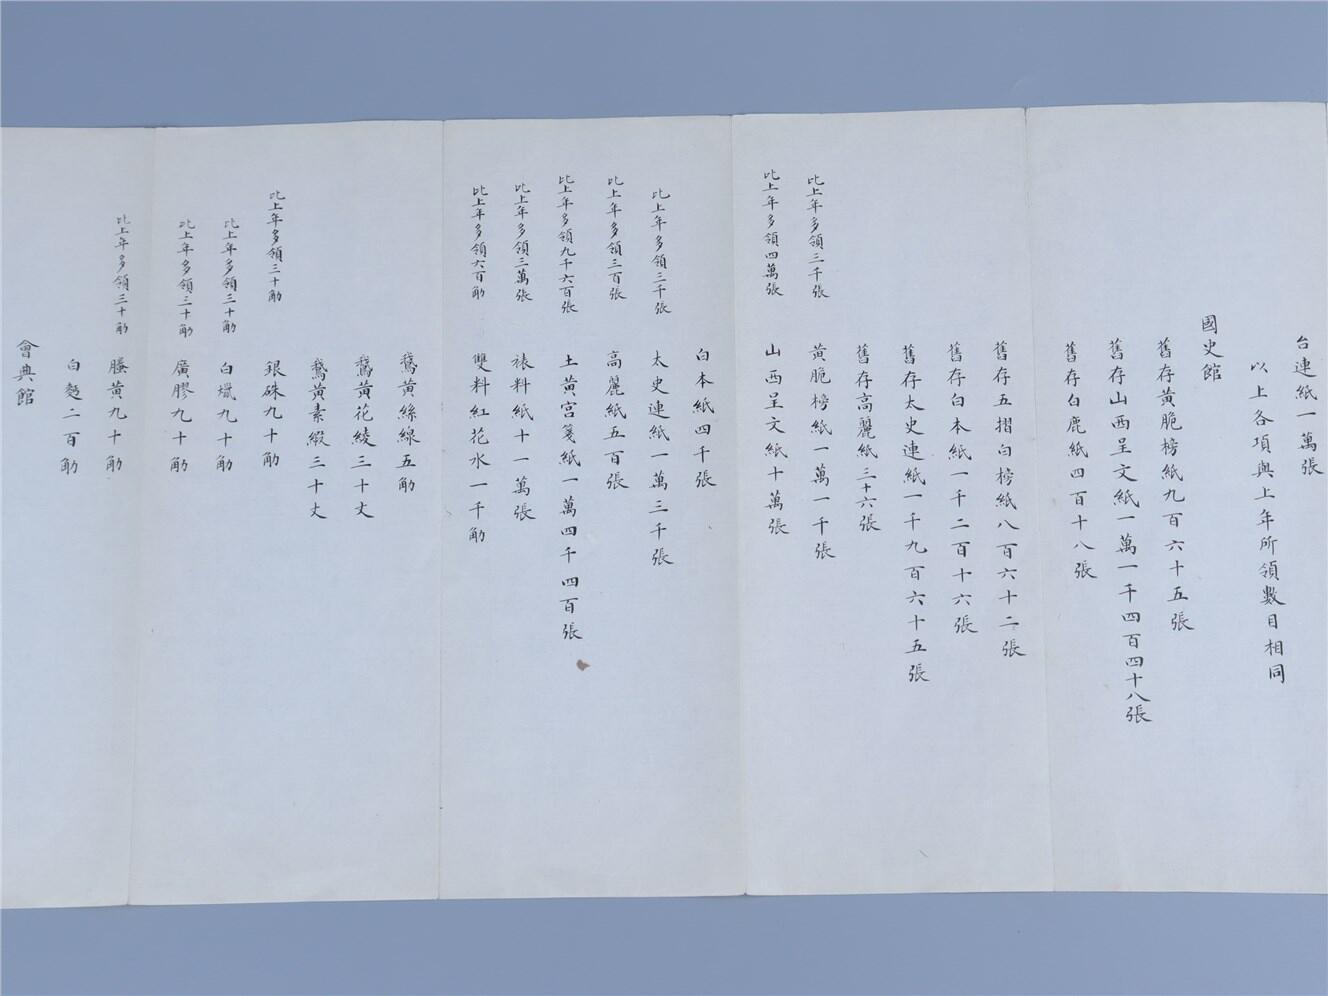 台連紙一萬張
以上各項與上年所領數目相同
國史館
舊存黃脆榜紙九百六十五張
舊存山西呈文紙一萬一千四百四十八張
舊存白鹿紙四百十八張
舊存五摺白榜紙八百六十二張
舊存白本紙一千二百十六張
舊存太史連紙一千九百六十五張
舊存高麗紙三十六張
比上年多領三千張 黃脆榜紙一萬一千張
比上年多領四萬張 山西呈文紙十萬張
白本紙四千張
比上年多領三千張 太史連紙一萬三千張
比上年多領三百張 高麗紙五百張
比上年多領九千六百張 土黃宮箋紙一萬四千四百張
比上年多領三萬張 裱料紙十一萬張
比上年多領六百觔 雙料紅花水一千觔
鵞黃絲線五觔
鵞黃花綾三十丈
鵞黃素緞三十丈
比上年多領三十觔 銀硃九十觔
比上年多領三十觔 白蠟九十觔
比上年多領三十觔 廣膠九十觔
比上年多領三十觔 籐黃九十觔
白麵二百觔
會典館